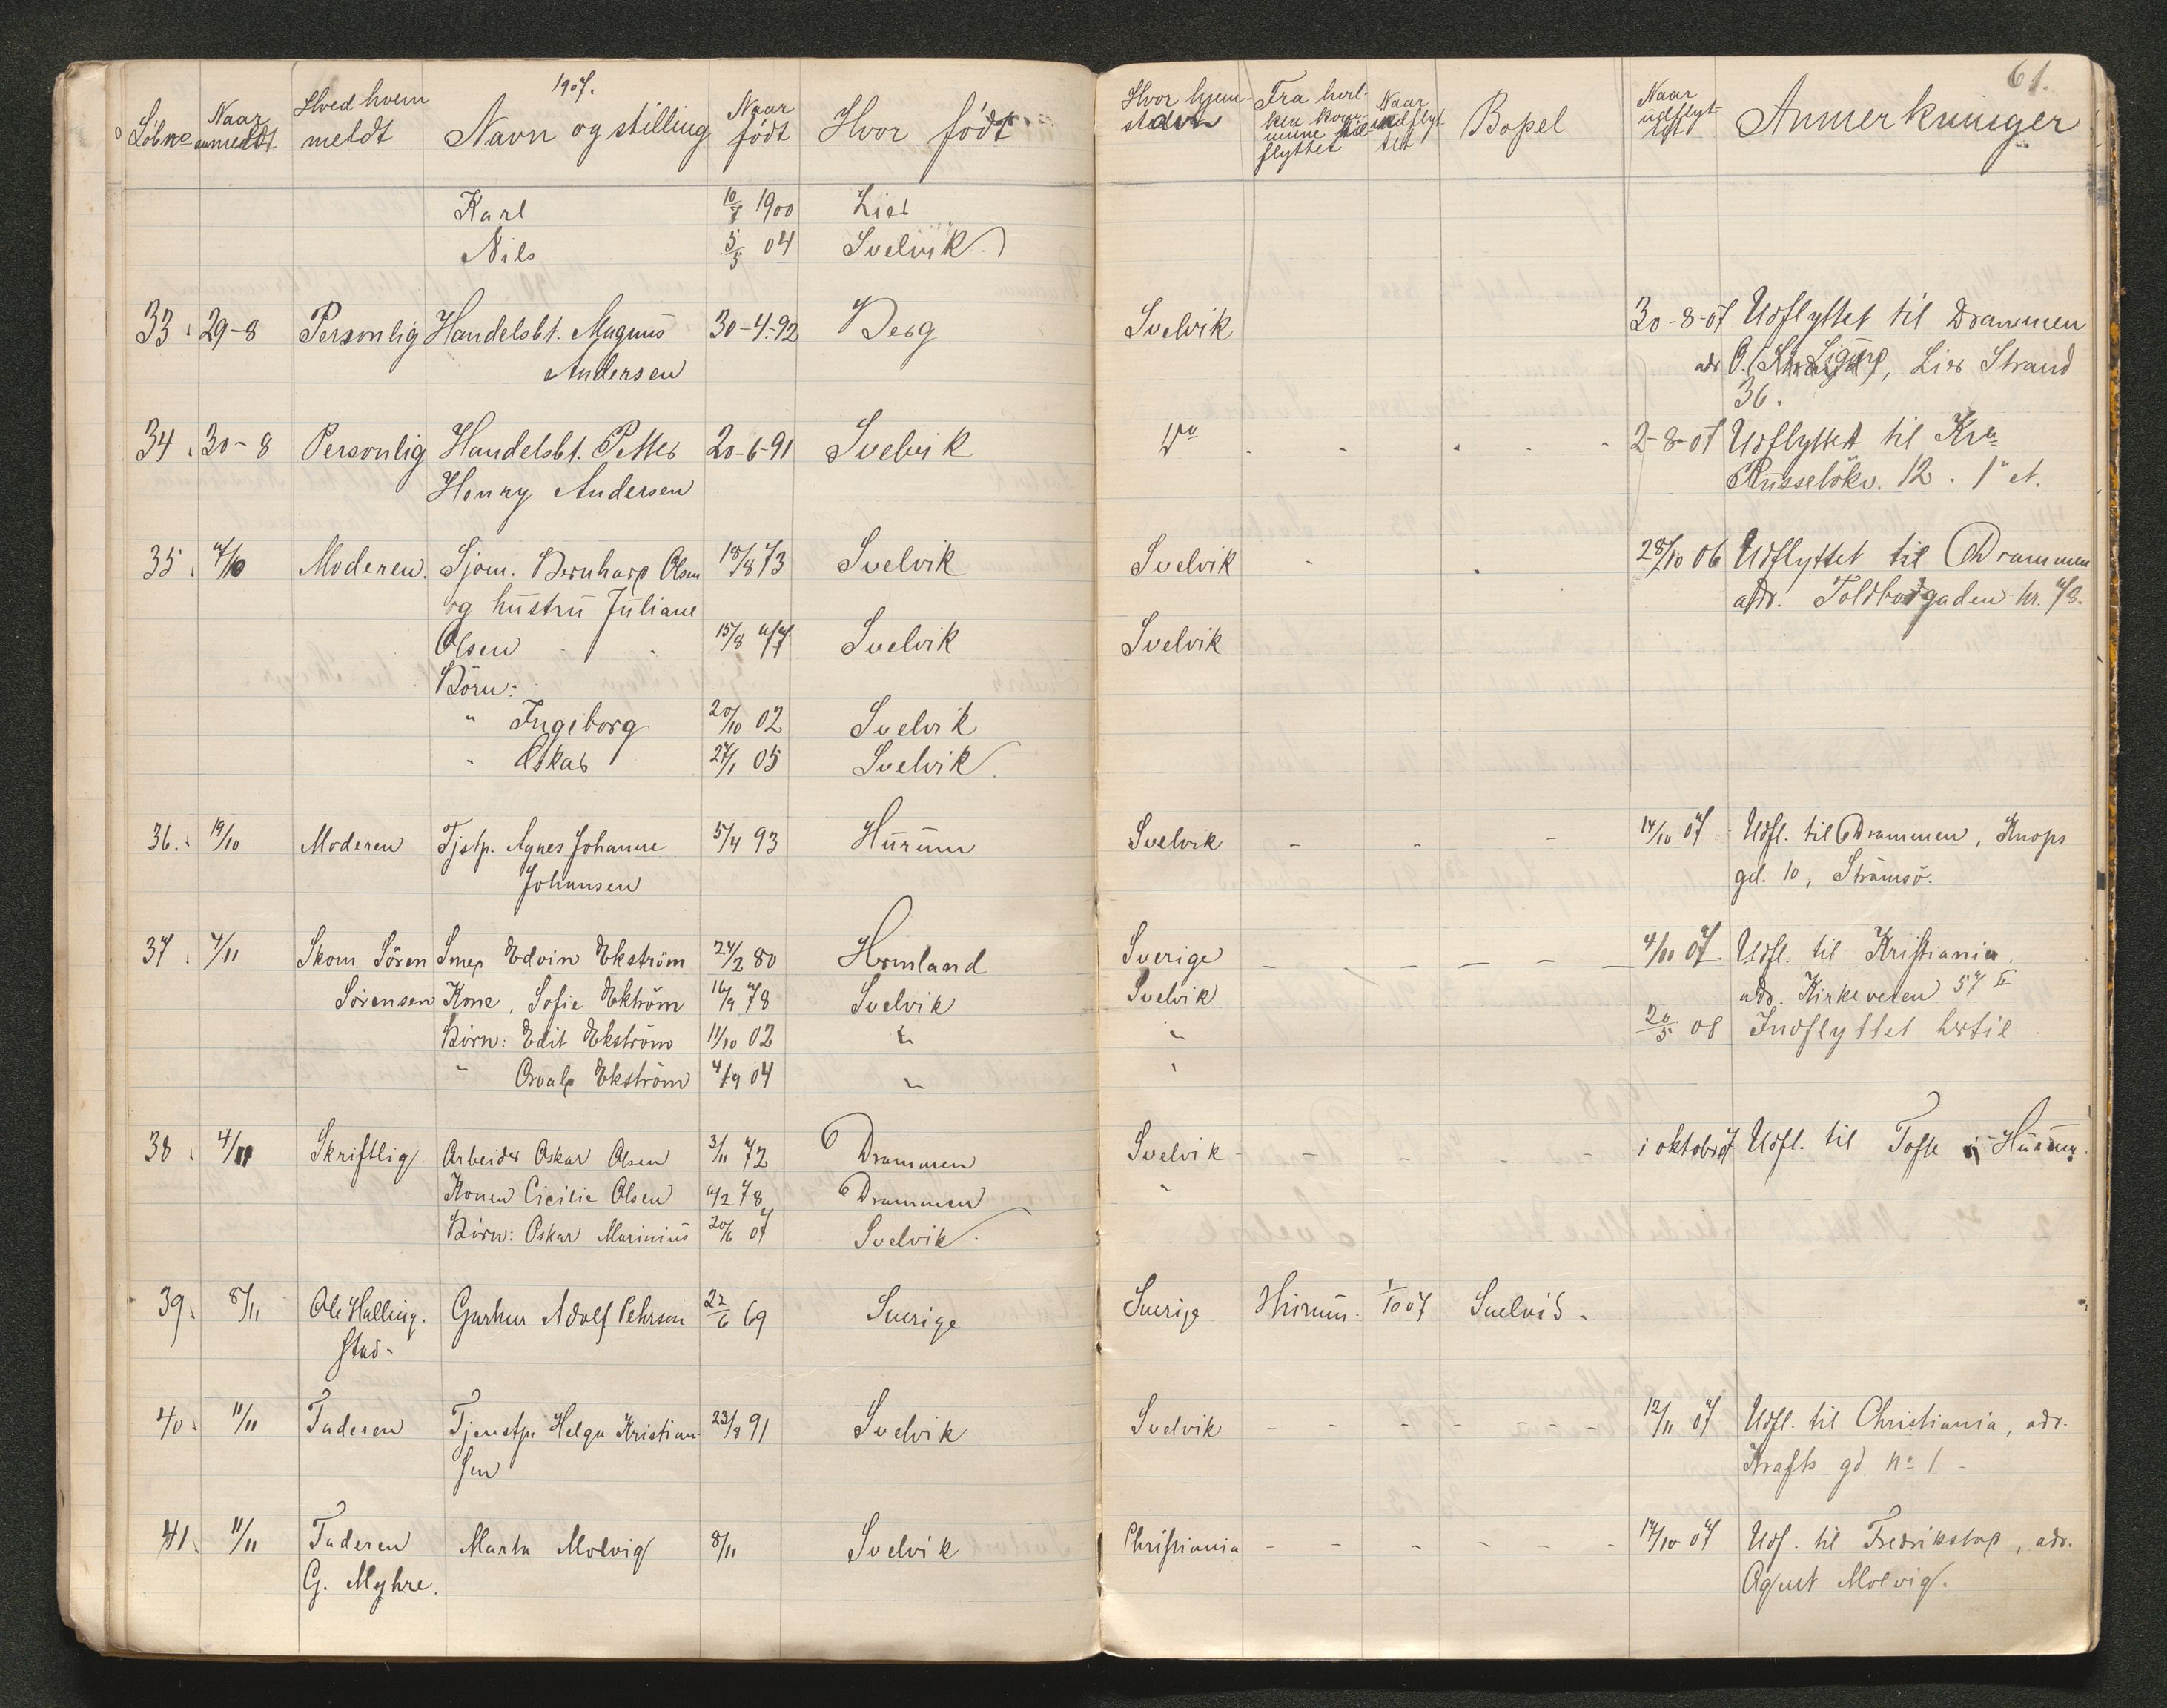 1907.
61.
Löbno Naar anmeldt Hved hvem meldt Navn og stilling Naar födt Hvor födt Hvor hjem- Fra hvil- ken kom- mune flyttet Naar indflyt tet Bopel Naar udflyt Anmerkninger
Karl 10/7 1900 Lier
Nils 5/5 04 Svelvik
33 29-8 Personlig Handelsbt. Magnus 30-4-92 Berg Svelvik 30-8-07 Udflyttet til Drammen
Andersen adr O. Lier Strand
36.
34 30-8 Personlig Handelsbt. Petter 20-6-91 Svelvik Do - - - - 2-8-07 Udflyttet til Kra
Henry Andersen Russelökv. 12. 1" et.
35 Moderen. Sjøm. Bernhard Olsen 18/8 73 Svelvik Svelvik - - 28/10 06 Udflyttet til Drammen
og hustru Juliane adr. Toldbodgaden nr. 73.
Olsen 15/8 77 Svelvik Svelvik
Börn:
" Ingeborg 20/10 02 Svelvik
" Oskar 27/1 05 Svelvik.
36. 19/10 Moderen Tjstp. Agnes Johanne 5/4 93 Hurum Svelvik - - - 14/10 07 Udfl. til Drammen, Knops
Johansen gd. 10, Strömsö.
37 4/11 Skom. Sören Smed Edvin Ekström 24/2 80 Sverige - - - - - 4/11 07. Udfl. til Kristiania.
Sörensen Kone, Sofie Ekström 16/9 78 Svelvik Svelvik adr. Kirkeveien 57 II
Börn: Edit Ekström 11/10 02 " " 20/5 08 Indflyttet hertil.
" Osvald Ekström 4/9 04 " "
38 4/11 Skriftlig Arbeider Oskar Olsen 3/11 72 Drammen Svelvik - - - - - i oktober Udfl. til Tofte i Hurum.
Konen Cicilie Olsen Drammen "
Börn: Oskar Marinius 20/6 07 Svelvik.
39. 8/11 Ole Halling- Adolf Pehrson 22/6 69 Sverige Sverige Hurum. 1/10 07 Svelvik.
stad-
40. 11/11 Faderen Tjenstp. Helga Kristian- 23/8 91 Svelvik Svelvik - - - - - 12/11 07 Udfl. til Christiania, adr.
sen Krafts gd no 1 -
41. 11/11 Faderen Marta Molvig 8/11 Svelvik Christiania - - - - - - 17/10 07 Udf. til Fredrikstad, adr.
G. Myhre. Agent Molvig.